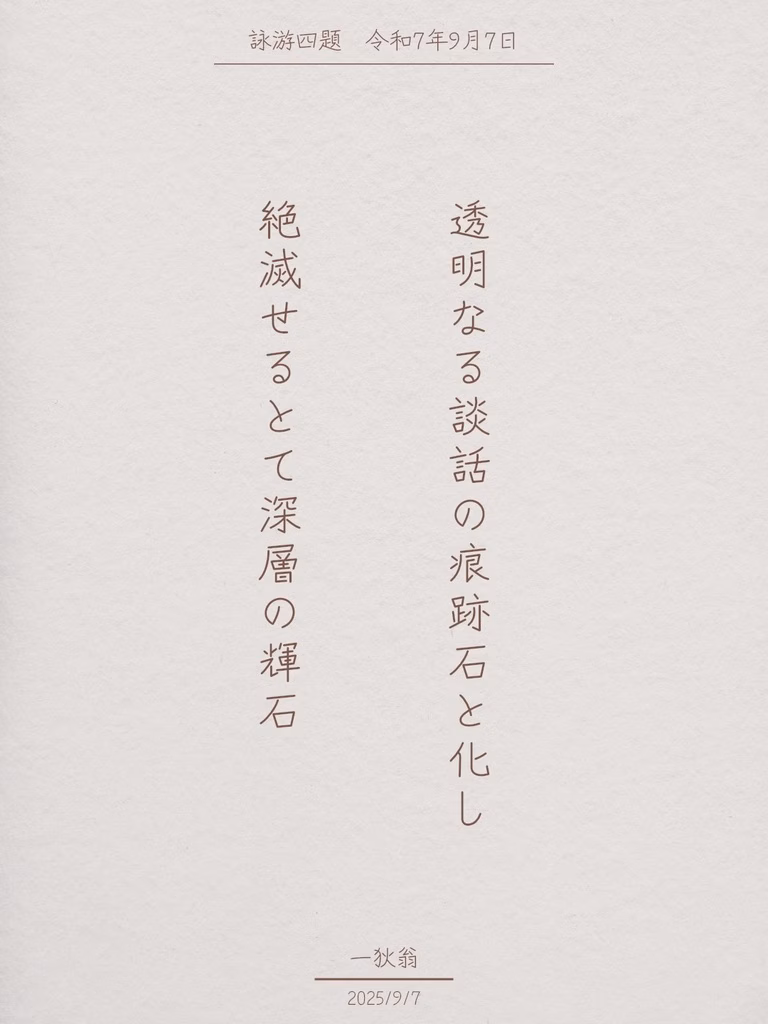 詠游四題　令和7年9月7日
透明なる談話の痕跡石と化し
絶滅せるとて深層の輝石
一狄翁
2025/9/7